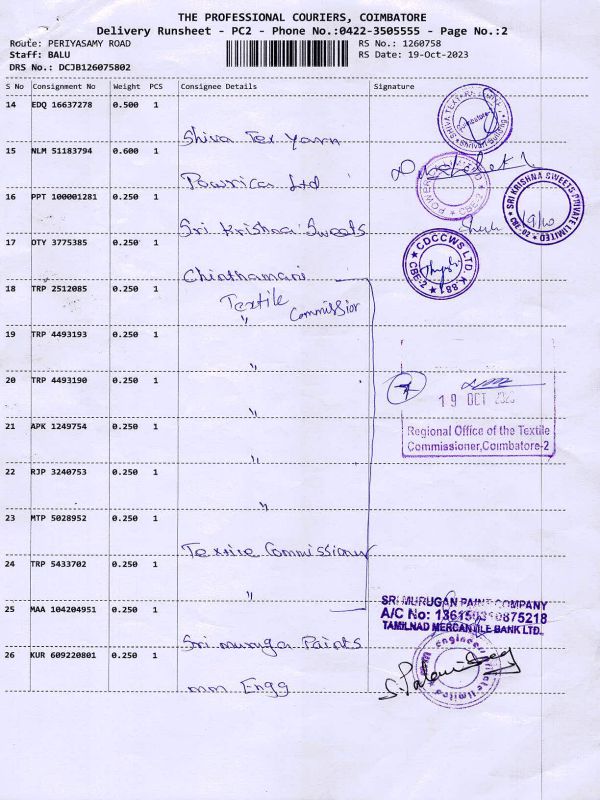 THE PROFESSIONAL COURIERS, COIMBATORE
Delivery Runsheet - PC2 - Phone No.:0422-3505555 - Page No.:2
Route: PERIYASAMY ROAD
RS No.: 1260758
Staff: BALU
RS Date: 19-Oct-2023
DRS No.: DCJB126075802
S No Consignment No Weight PCS Consignee Details Signature
14 EDQ 16637278 0.500 1
Shiva Tex Yarn
SHIVA TEXYARN
15 NLM 51183794 0.600 1
Powrica Ltd
16 PPT 100001281 0.250 1
Sri Krishna Sweets
SRI KRISHNA SWEETS PRIVATE LIMITED
CBE-02
19/10
17 DTY 3775385 0.250 1
Chinthamani
CDCCWS LTD. K.881
CBE-2
18 TRP 2512085 0.250 1
Textile
" Commissior
19 TRP 4493193 0.250 1
"
20 TRP 4493190 0.250 1
"
19 OCT 2023
21 APK 1249754 0.250 1
"
Regional Office of the Textile
Commissioner,Coimbatore-2
22 RJP 3240753 0.250 1
"
23 MTP 5028952 0.250 1
Textile Commissioner
24 TRP 5433702 0.250 1
"
25 MAA 104204951 0.250 1
Sri muruga Paints
SRI MURUGAN PAINT COMPANY
A/C No:
TAMILNAD MERCANTILE BANK LTD.
26 KUR 609220801 0.250 1
mm Engg